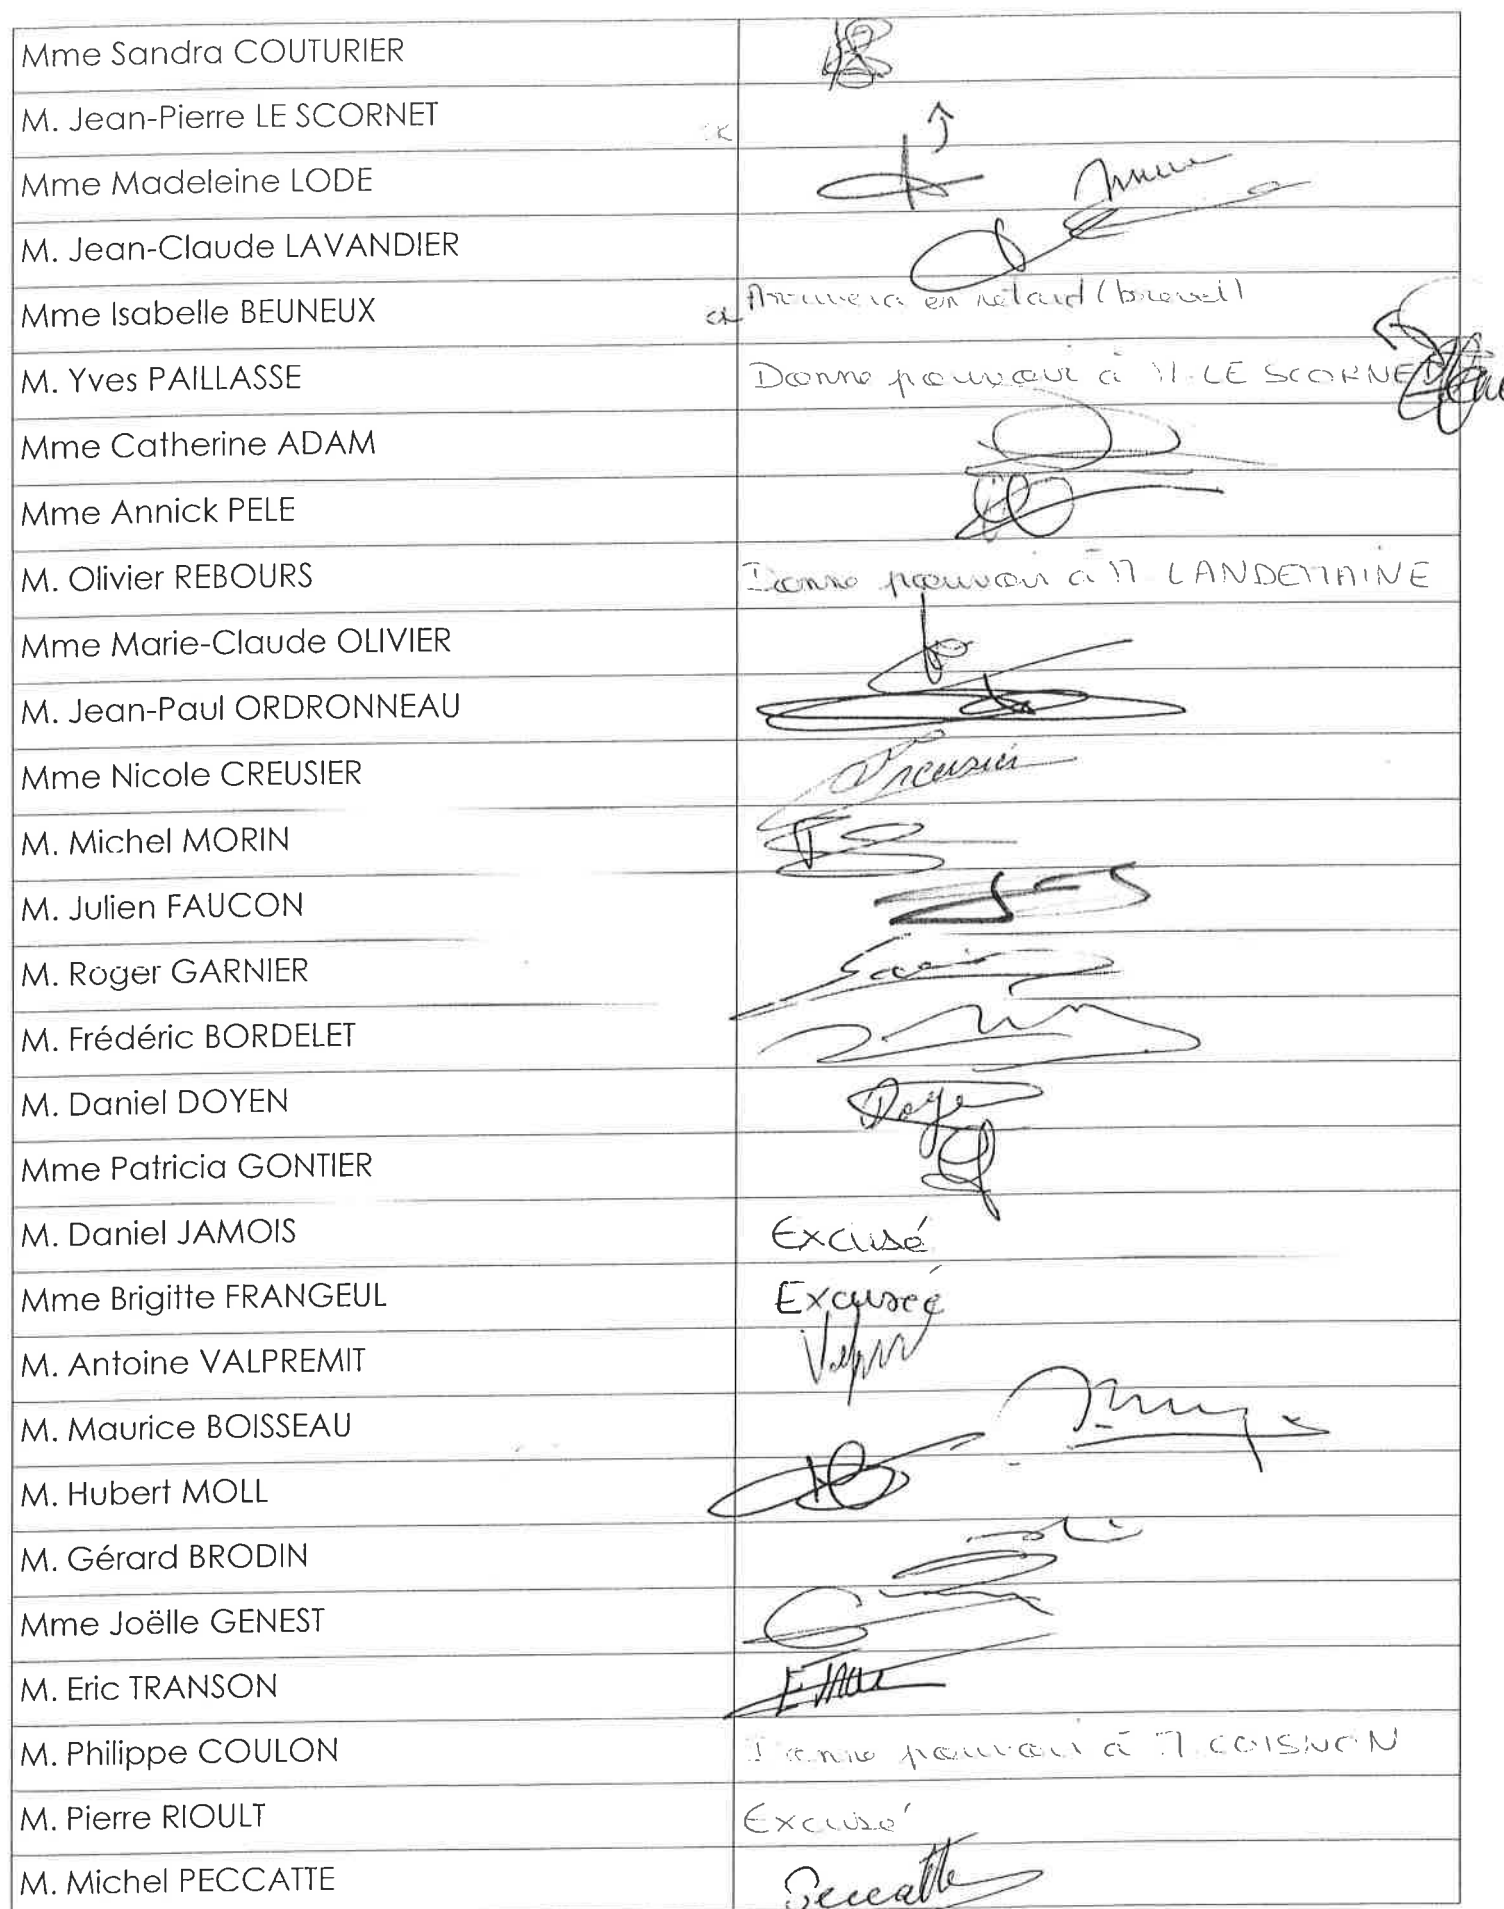 Mme Sandra COUTURIER
M. Jean-Pierre LE SCORNET
Mme Madeleine LODE
M. Jean-Claude LAVANDIER
Mme Isabelle BEUNEUX Arrivera en retard (brevet)
M. Yves PAILLASSE Donne pouvoir à M. LE SCORNET
Mme Catherine ADAM
Mme Annick PELE
M. Olivier REBOURS Donne pouvoir à M. LANDEMAINE
Mme Marie-Claude OLIVIER
M. Jean-Paul ORDRONNEAU
Mme Nicole CREUSIER Creusier
M. Michel MORIN
M. Julien FAUCON
M. Roger GARNIER
M. Frédéric BORDELET
M. Daniel DOYEN Doyen
Mme Patricia GONTIER
M. Daniel JAMOIS Excusé
Mme Brigitte FRANGEUL Excusée
M. Antoine VALPREMIT
M. Maurice BOISSEAU
M. Hubert MOLL
M. Gérard BRODIN
Mme Joëlle GENEST
M. Eric TRANSON
M. Philippe COULON Donne pouvoir à M. COISNON
M. Pierre RIOULT Excusé
M. Michel PECCATTE Peccatte